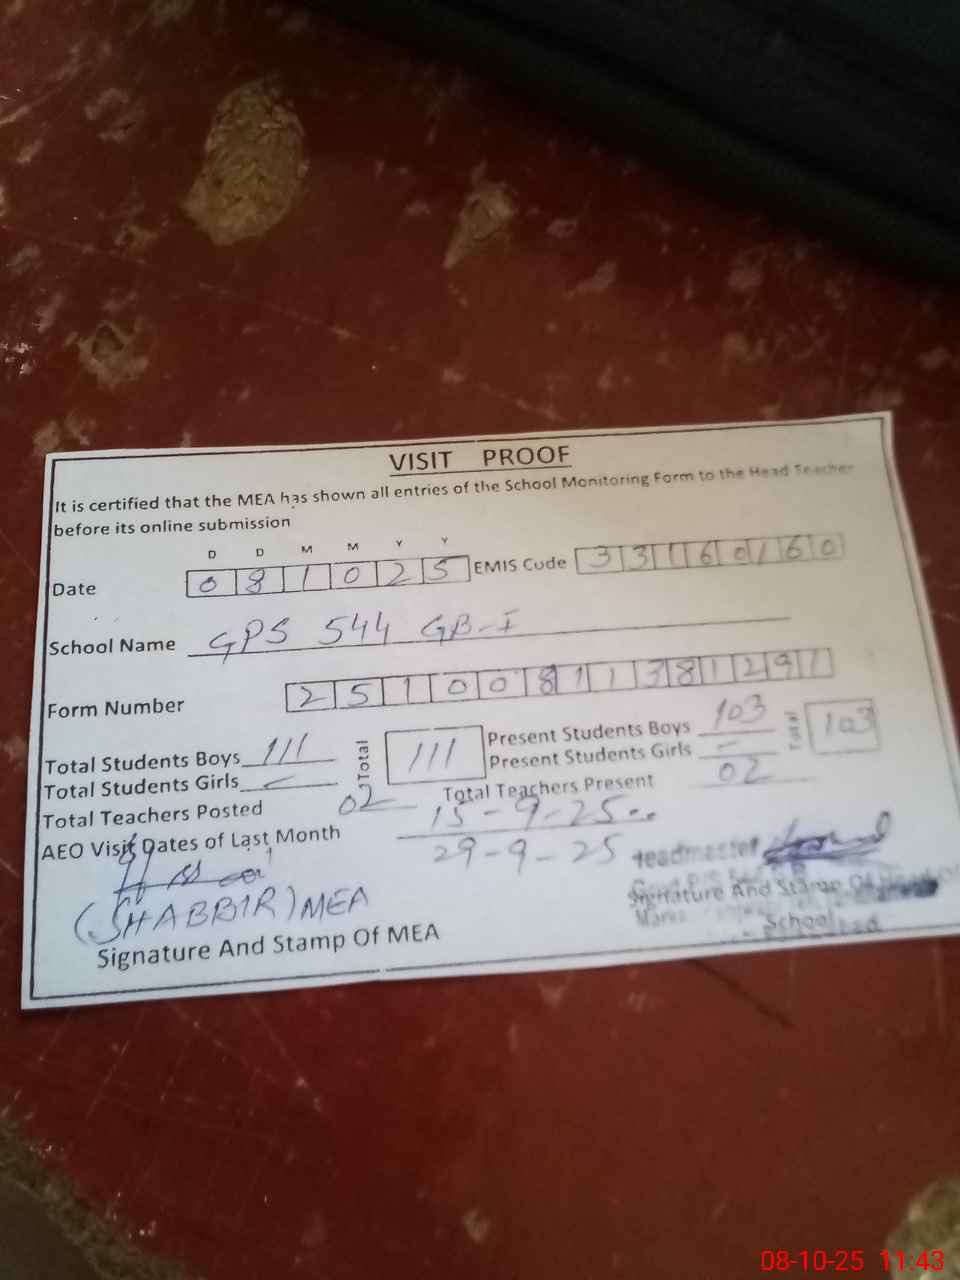 VISIT PROOF
It is certified that the MEA has shown all entries of the School Monitoring Form to the Head Teacher
before its online submission
D D M M Y Y
Date 081025 EMIS Code 33160160
School Name GPS 544 GB-I
Form Number 25100811381291
Total Students Boys 111 Total 111 Present Students Boys 103 Total 103
Total Students Girls - Present Students Girls -
Total Teachers Posted 02 Total Teachers Present 02
AEO Visit Dates of Last Month 15-9-25
29-9-25
Headmaster
(SHABBIR) MEA
Signature And Stamp Of MEA
Signature And Stamp Of
School
08-10-25 11:43